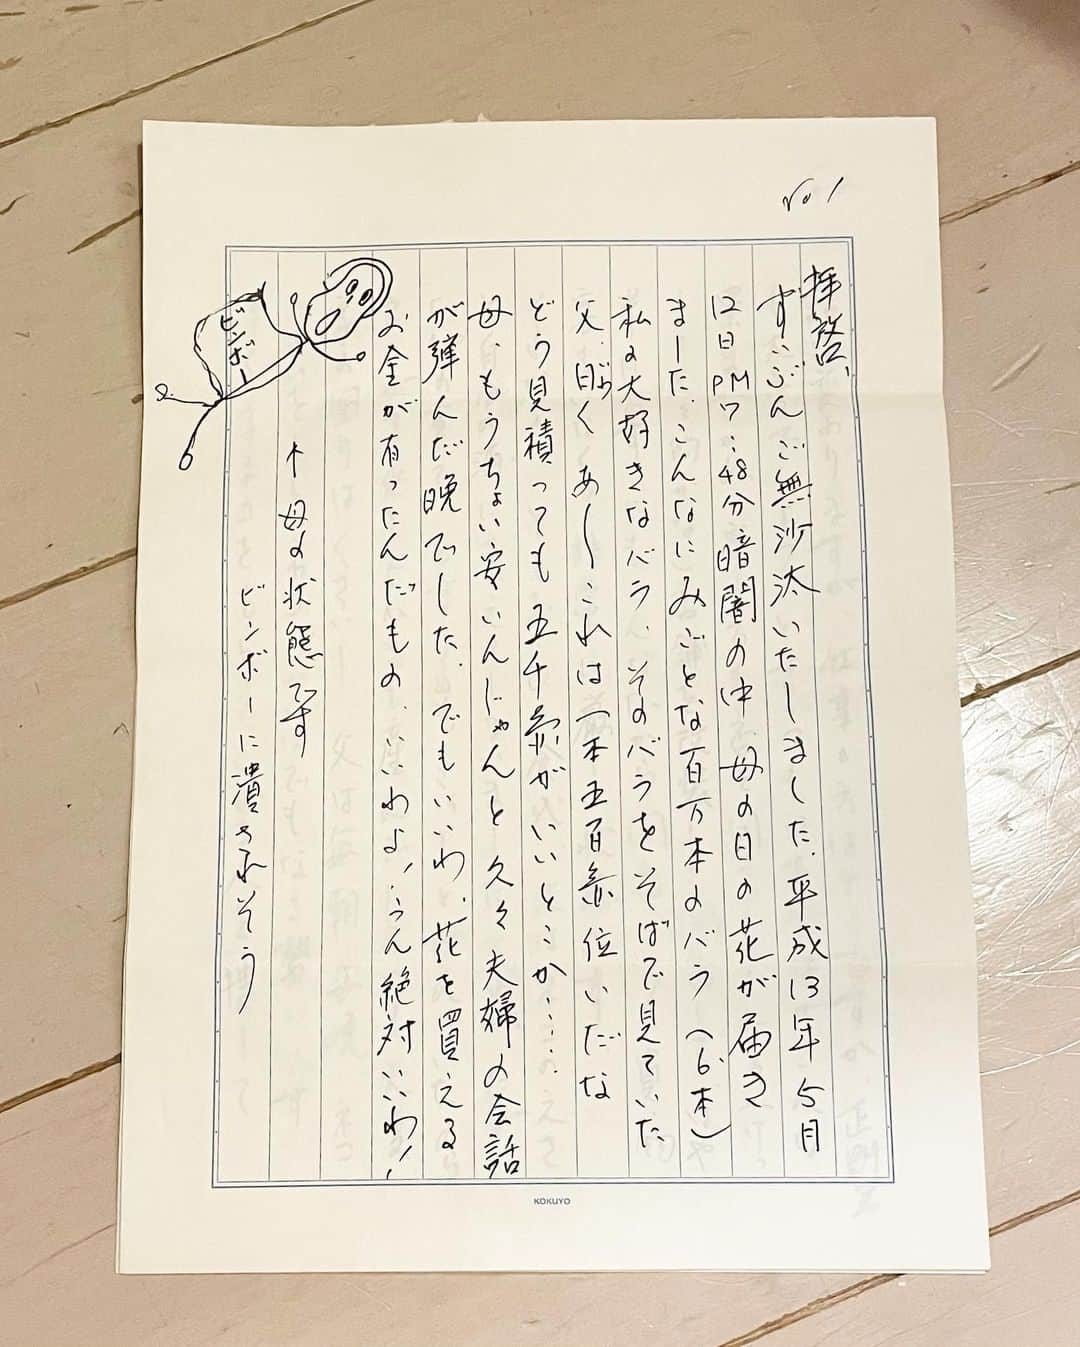 No 1
拝啓、
ずいぶんご無沙汰いたしました、平成13年5月
12日PM7:48分暗闇の中、母の日の花が届き
ました、こんなにみごとな百万本のバラ(6本)
私の大好きなバラ、そのバラをそばで見ていた
父、曰くあ〜これは一本五百円位いだな
どう見積っても五千円がいいとこか……
母、もうちょい安いんじゃんと久々夫婦の会話
が弾んだ晩でした、でもいいわ、花を買える
お金が有ったんだもの、いいわよ、うん絶対いいわ!
↑母の状態です
ビンボーに潰されそう
ビンボー
KOKUYO